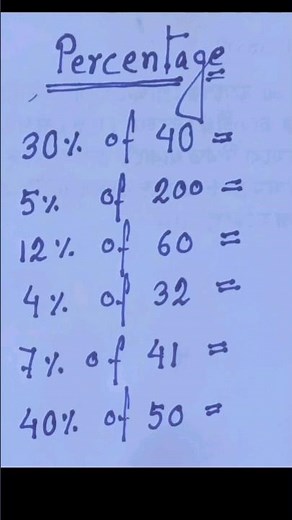 Percentage
30% of 40 =
5% of 200 =
12% of 60 =
4% of 32 =
7% of 41 =
40% of 50 =